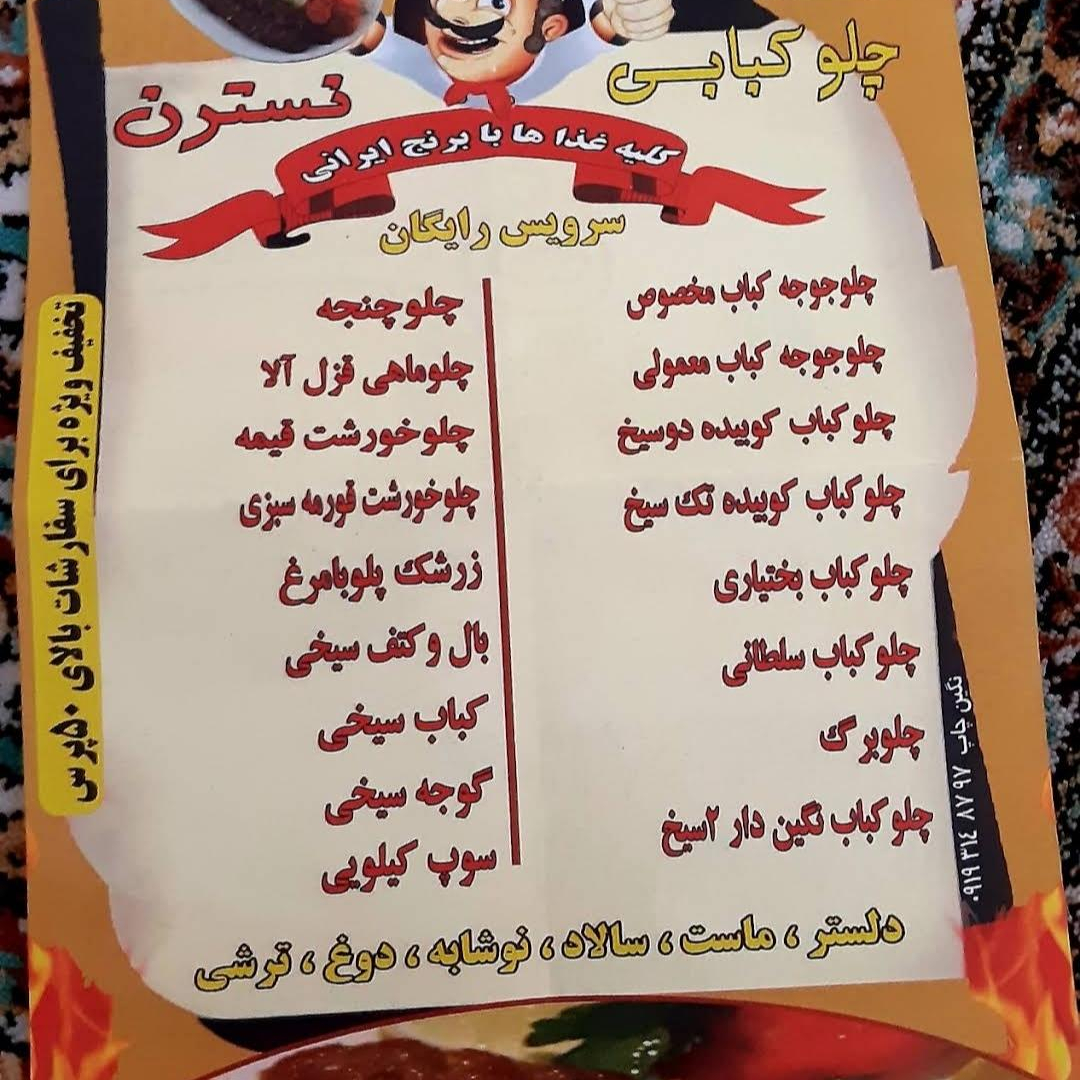 چلوکبابی نسترن
کلیه غذا ها با برنج ایرانی
سرویس رایگان
چلوجوجه کباب مخصوص
چلوجوجه کباب معمولی
چلوکباب کوبیده دوسیخ
چلوکباب کوبیده تک سیخ
چلوکباب بختیاری
چلوکباب سلطانی
چلوبرگ
چلوکباب نگین دار ۲سیخ
چلوچنجه
چلوماهی قزل آلا
چلوخورشت قیمه
چلوخورشت قورمه سبزی
زرشک پلوبامرغ
بال و کتف سیخی
کباب سیخی
گوجه سیخی
سوپ کیلویی
دلستر ، ماست ، سالاد ، نوشابه ، دوغ ، ترشی
تخفیف ویژه برای سفارشات بالای ۵۰پرس
نگین چاپ ۰۹۱۹ ۳۱۴ ۸۷ ۹۷